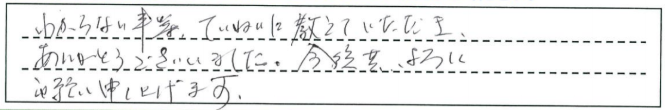 わからない事等、ていねいに教えていただき、
ありがとうございました。今後共、よろしく
お願い申し上げます。